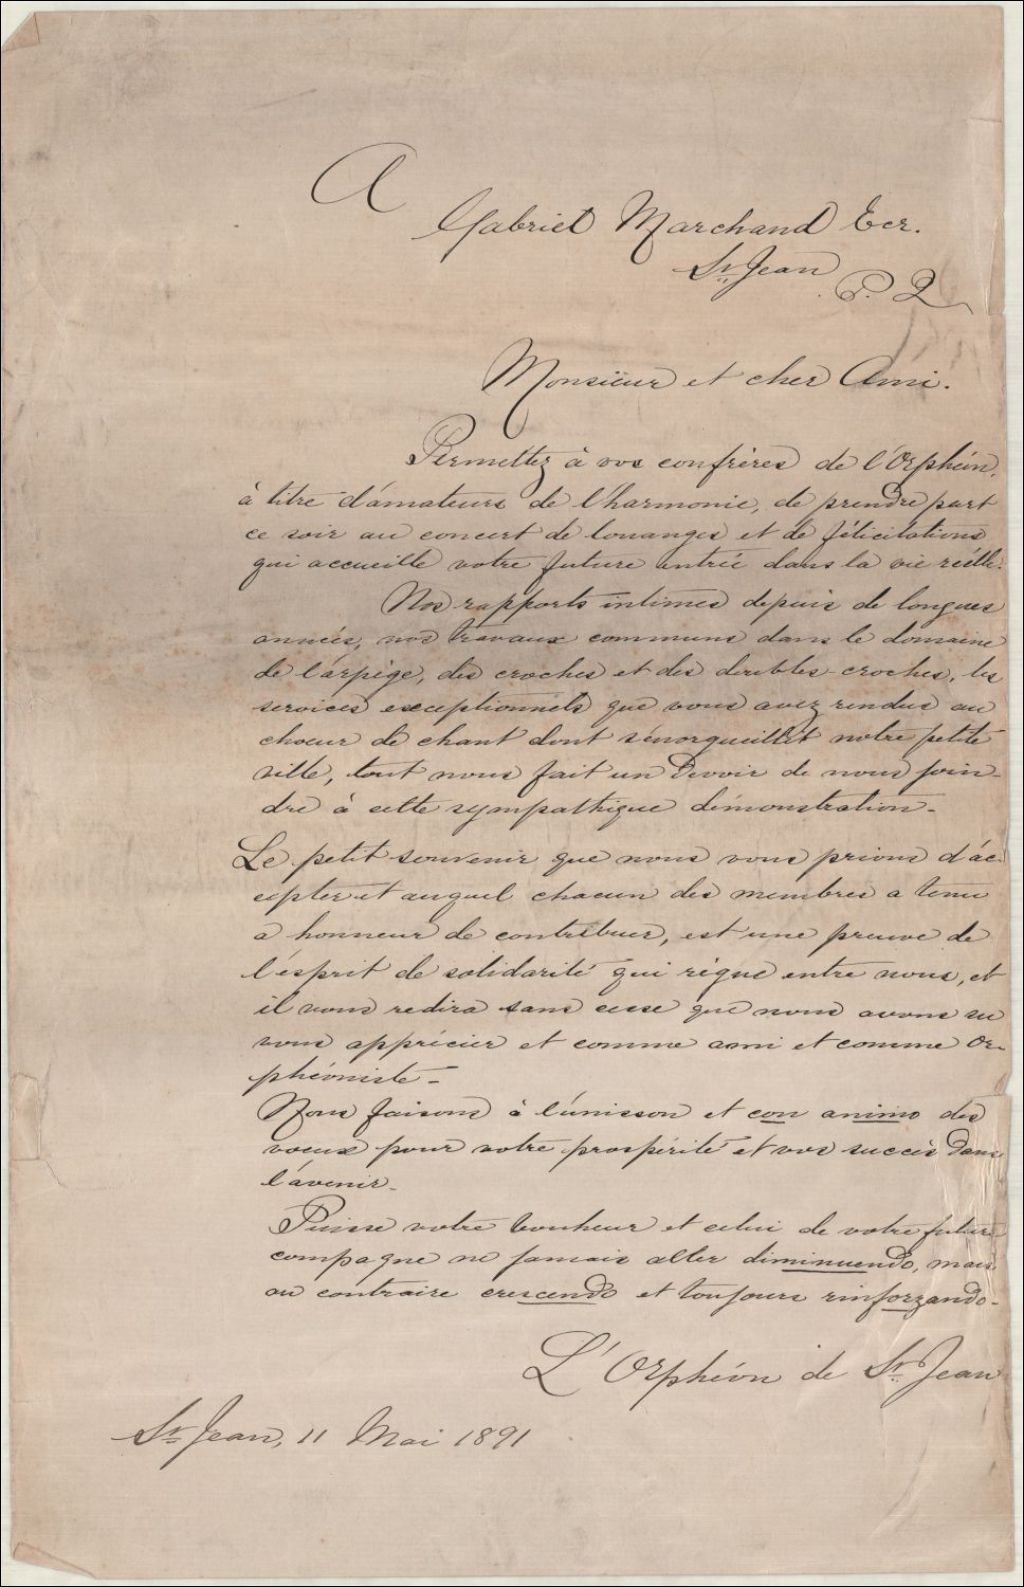 A
Gabriel Marchand Ecr.
St Jean
P. Q
Monsieur et cher Ami.
Permettez à vos confrères de l'Orphéon,
à titre d'amateurs de l'harmonie, de prendre part
ce soir au concert de louanges et de félicitations
qui accueille votre future entrée dans la vie réelle.
Nos rapports intimes depuis de longues
années, nos travaux communs dans le domaine
de l'arpège, des croches et des doubles-croches, les
services exceptionnels que vous avez rendus au
choeur de chant dont s'énorgueillit notre petite
ville, tout nous fait un devoir de nous join-
dre à cette sympathique démonstration.
Le petit souvenir que nous vous prions d'ac-
cepter et auquel chacun des membres a tenu
a honneur de contribuer, est une preuve de
l'esprit de solidarité qui règne entre nous, et
il vous redira sans cesse que nous avons su
vous apprécier et comme ami et comme Or-
phéoniste.
Nous faisons à l'unisson et con animo des
voeux pour votre prospérité et vos succès dans
l'avenir.
Puisse votre bonheur et celui de votre future
compagne ne jamais aller diminuendo, mais
au contraire crescendo et toujours rinforzando.
L'Orphéon de St. Jean
St Jean, 11 Mai 1891